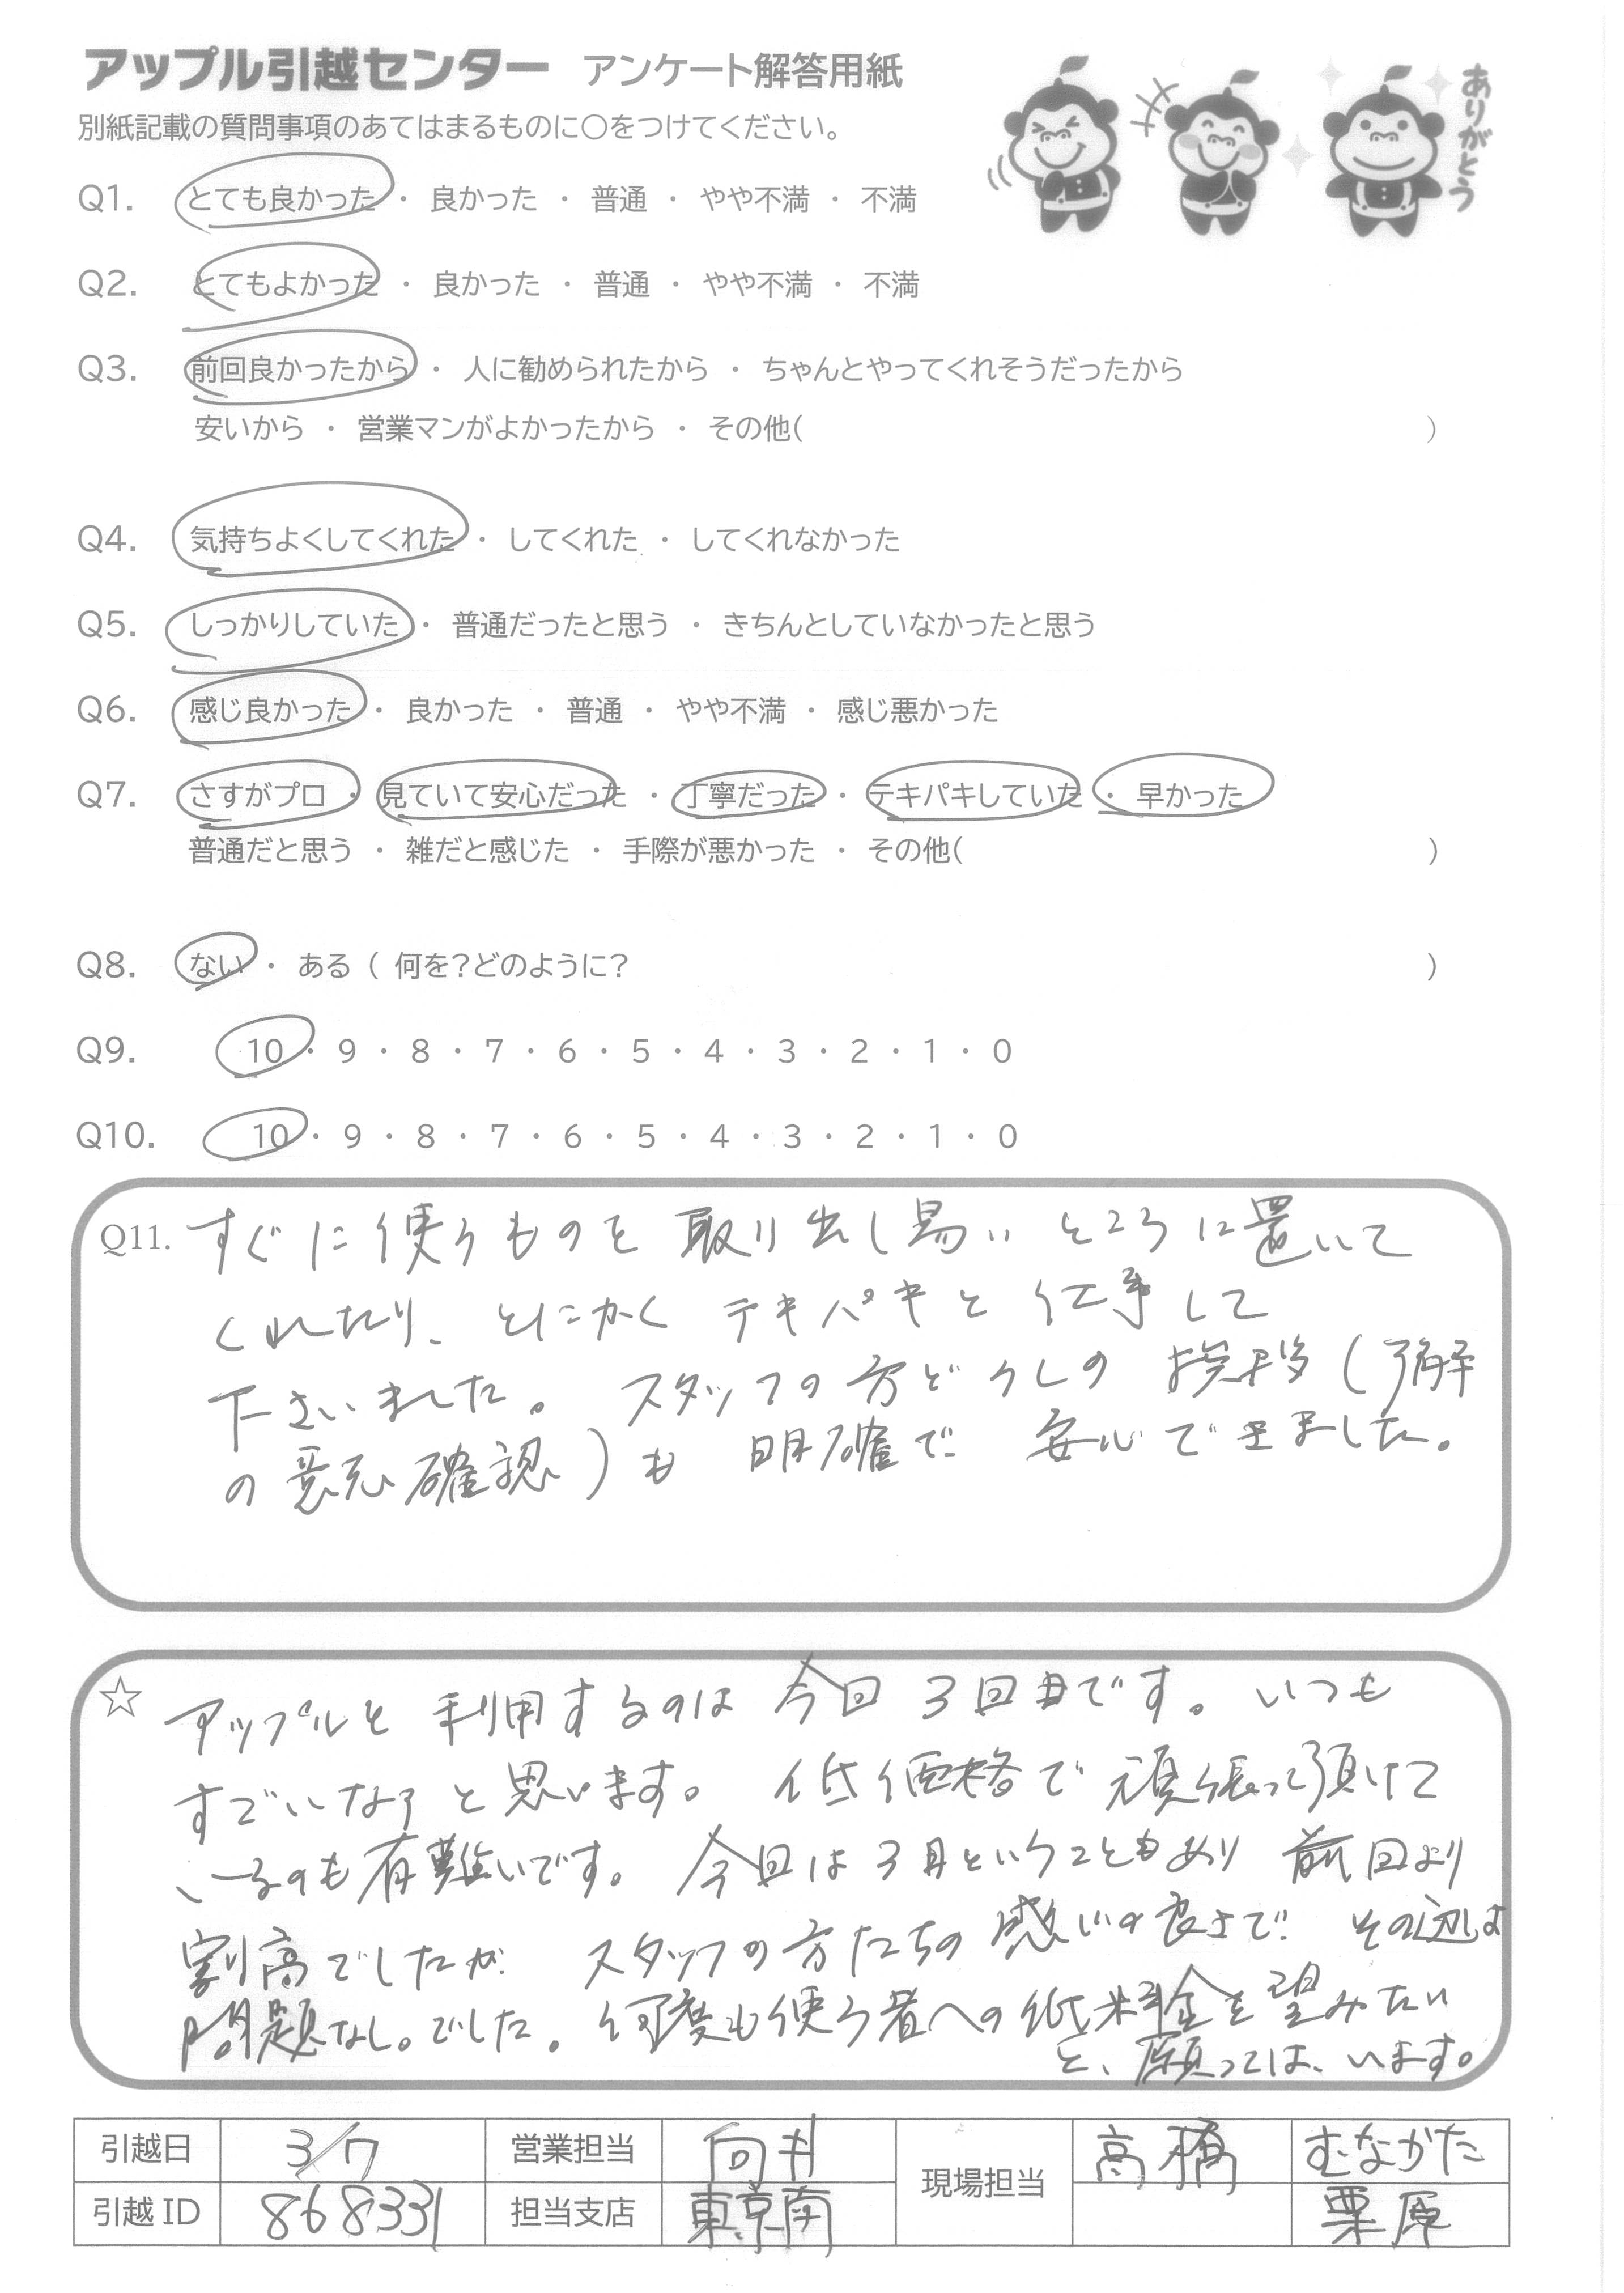 アップル引越センター アンケート解答用紙
ありがとう
別紙記載の質問事項のあてはまるものに〇をつけてください。
Q1. とても良かった ・ 良かった ・ 普通 ・ やや不満 ・ 不満
Q2. とてもよかった ・ 良かった ・ 普通 ・ やや不満 ・ 不満
Q3. 前回良かったから ・ 人に勧められたから ・ ちゃんとやってくれそうだったから
安いから ・ 営業マンがよかったから ・ その他( )
Q4. 気持ちよくしてくれた ・ してくれた ・ してくれなかった
Q5. しっかりしていた ・ 普通だったと思う ・ きちんとしていなかったと思う
Q6. 感じ良かった ・ 良かった ・ 普通 ・ やや不満 ・ 感じ悪かった
Q7. さすがプロ ・ 見ていて安心だった ・ 丁寧だった ・ テキパキしていた ・ 早かった
普通だと思う ・ 雑だと感じた ・ 手際が悪かった ・ その他( )
Q8. ない ・ ある ( 何を?どのように? )
Q9. 10 ・ 9 ・ 8 ・ 7 ・ 6 ・ 5 ・ 4 ・ 3 ・ 2 ・ 1 ・ 0
Q10. 10 ・ 9 ・ 8 ・ 7 ・ 6 ・ 5 ・ 4 ・ 3 ・ 2 ・ 1 ・ 0
Q11. すぐに使うものを取り出し易いところに置いて
くれたり、とにかくテキパキと仕事して
下さいました。スタッフの方どうしの挨拶(了解
の意志確認)も明確で安心できました。
☆ アップルを利用するのは今回3回目です。いつも
すごいなァと思います。低価格で頑張って頂けて
いるのも有難いです。今回は3月ということもあり前回より
割高でしたが スタッフの方たちの感じの良さで その辺は
問題なし。でした。何度も使う者への低料金を望みたい
と、願っては、います。
引越日 3/7 営業担当 向井 現場担当 高橋 むなかた
引越ID 868331 担当支店 東京南 栗原